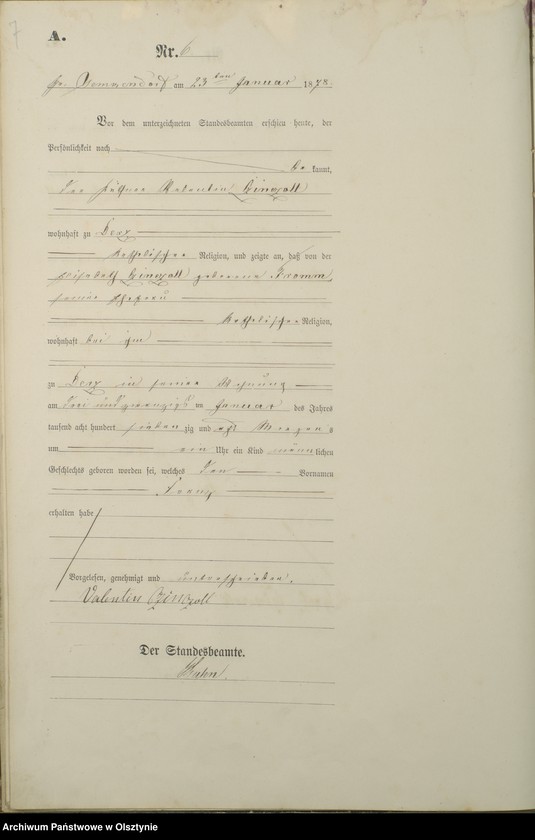 7
A.
Nr. 6
am 23ten Januar 1878.
Vor dem unterzeichneten Standesbeamten erschien heute, der
Persönlichkeit nach
be kannt,
der Valentin
wohnhaft zu Derz
katholischer Religion, und zeigte an, daß von der
Elisabeth geborene Fromm,
seiner Ehefrau
katholischer Religion,
wohnhaft bei ihm
zu Derz in seiner Wohnung
am drei und zwanzigsten Januar des Jahres
tausend acht hundert sieben zig und acht Morgens
um ein Uhr ein Kind männlichen
Geschlechts geboren worden sei, welches den Vornamen
Franz
erhalten habe
Vorgelesen, genehmigt und unterschrieben.
Valentin
Der Standesbeamte.
Archiwum Państwowe w Olsztynie